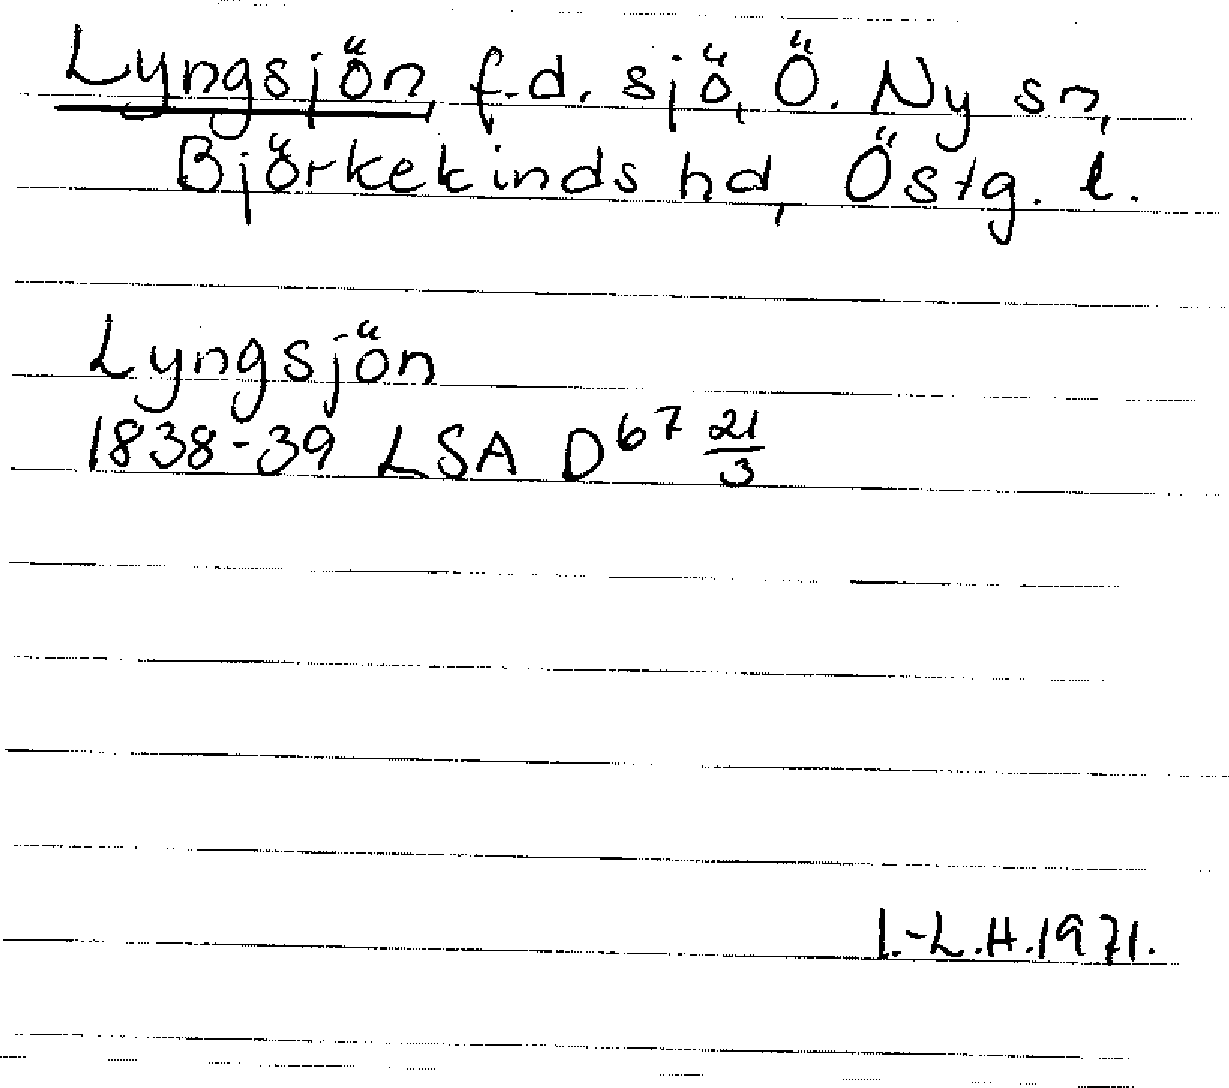 Lyngsjön, f.d. sjö, Ö. Ny sn,
Björkekinds hd, Östg. l.
Lyngsjön
1838-39 LSA D67 21/3
I.-L.H.1971.